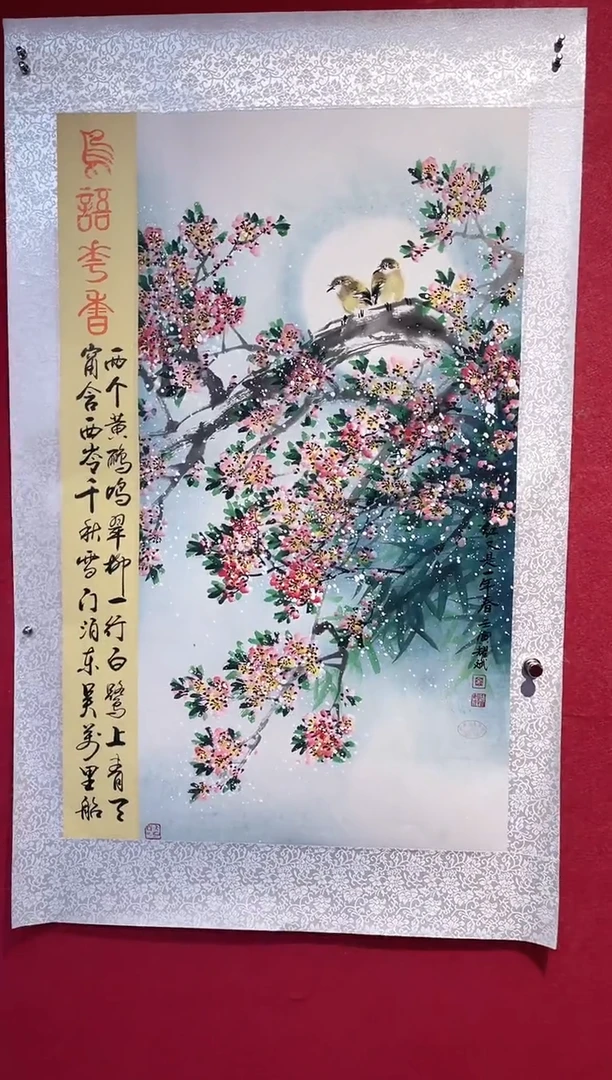 鳥語花香
两个黄鹂鸣翠柳一行白鹭上青天
窗含西岭千秋雪门泊东吴万里船